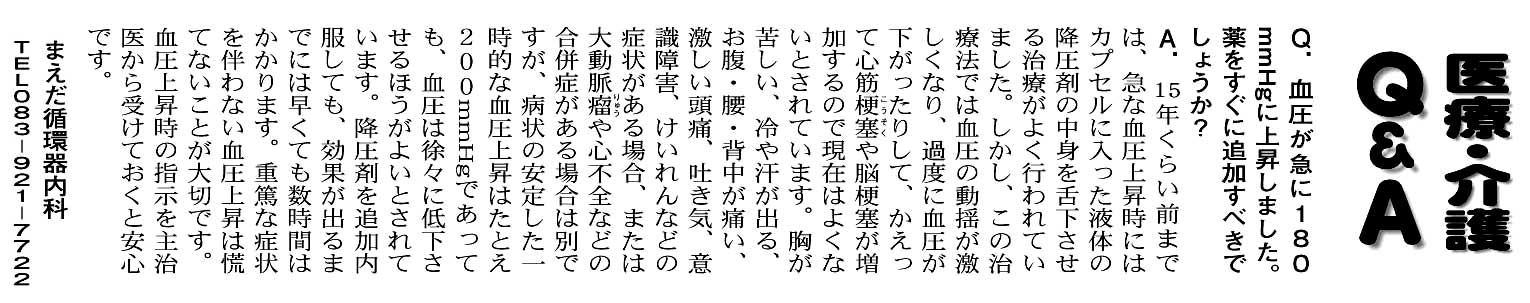 医療・介護
Q&A
Q. 血圧が急に180
mmHgに上昇しました。
薬をすぐに追加すべきで
しょうか?
A. 15年くらい前まで
は、急な血圧上昇時には
カプセルに入った液体の
降圧剤の中身を舌下させ
る治療がよく行われてい
ました。しかし、この治
療法では血圧の動揺が激
しくなり、過度に血圧が
下がったりして、かえっ
て心筋梗塞や脳梗塞が増
加するので現在はよくな
いとされています。胸が
苦しい、冷や汗が出る、
お腹・腰・背中が痛い、
激しい頭痛、吐き気、意
識障害、けいれんなどの
症状がある場合、または
大動脈瘤や心不全などの
合併症がある場合は別で
すが、病状の安定した一
時的な血圧上昇はたとえ
200mmHgであって
も、血圧は徐々に低下さ
せるほうがよいとされて
います。降圧剤を追加内
服しても、効果が出るま
でには早くても数時間は
かかります。重篤な症状
を伴わない血圧上昇は慌
てないことが大切です。
血圧上昇時の指示を主治
医から受けておくと安心
です。
まえだ循環器内科
TEL083-921-7722